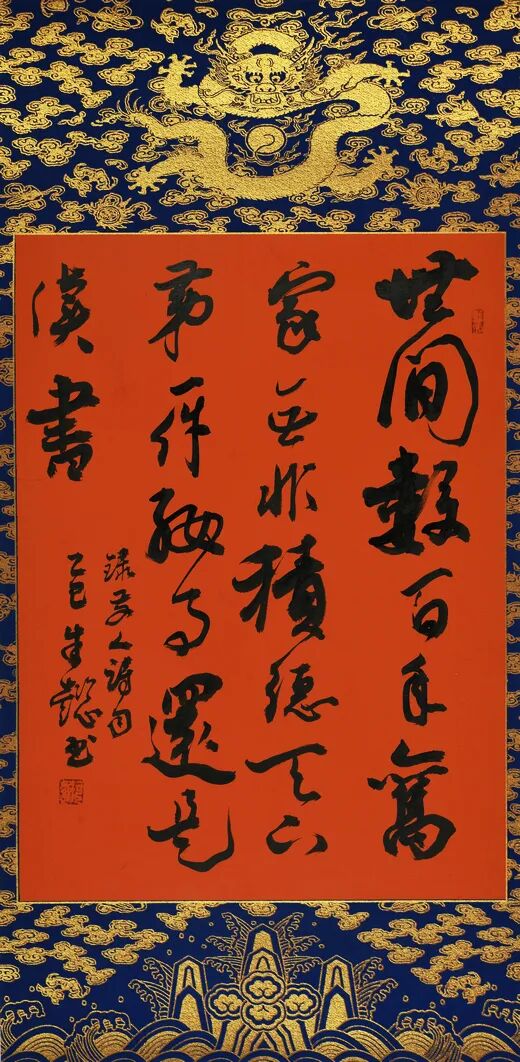 世間數百年舊
家無非積德天下
第一件好事還是
讀書
錄人詩句
乙巳书